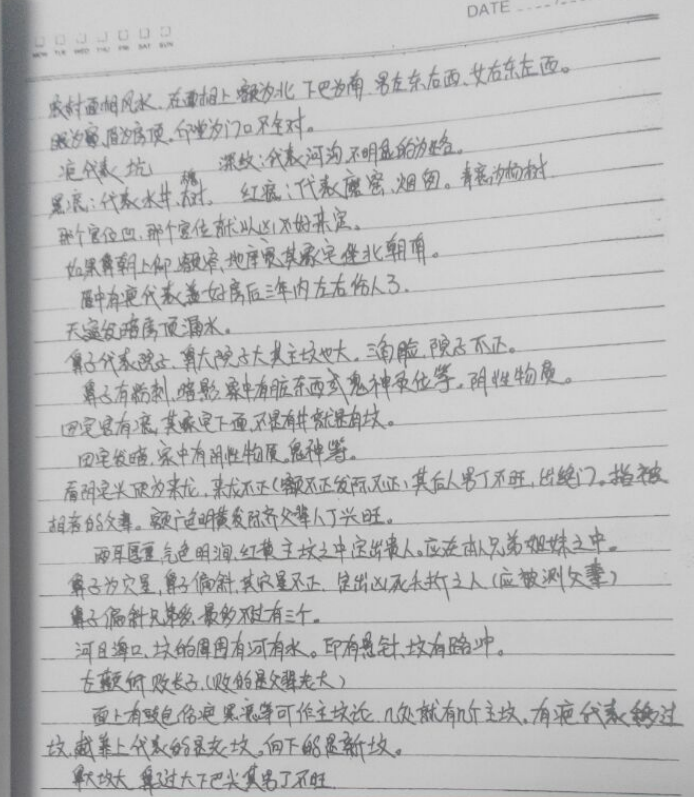 DATE
MON TUE WED THU FRI SAT SUN
农村面相风水、在面相上额为北 下巴为南 男左东右西、女右东左西。
眼为窗、眉为房顶、印堂为门口不全对。
疤代表坑 深纹:代表河沟、不明显的为路。
黑痣:代表水井、树。 红痣:代表磨窑、烟囱。青痣为柏树
那个宫位凹、那个宫位就以凶不好来定。
如果鼻朝上仰、额窄、地库宽其家宅坐北朝南。
眉中有疤代表盖好房后三年内左右伤人了。
天窗发暗房顶漏水。
鼻子代表院子、鼻大院子大其主坟也大、三角脸、院子不正。
鼻子有粉刺、暗影、家中有脏东西或鬼神灵位等。阴性物质。
田宅宫有痣、其家宅下面、不是有井就是有坟。
田宅发暗、家中有阴性物质、鬼神等。
看阴宅头顶为来龙、来龙不正(额不正发际不正)其后人男丁不旺、出绝门。指被
相者的父辈。额广色明黄发际齐父辈人丁兴旺。
两耳厚重气色明润、红黄主坟之中定出贵人。应在本人兄弟姐妹之中。
鼻子为穴星、鼻子偏斜、其穴星不正、定出凶死夭折之人(应被测父辈)
鼻子偏斜兄弟多、最多不过有三个。
河目海口、坟的周围有河有水。印有悬针、坟有路冲。
左颧倾败长子、(败的是父辈老大)
面上有暗色伤疤黑痣等可作主坟论、几处就有几个主坟、有疤代表移过
坟、越靠上代表的是老坟、向下的是新坟。
鼻大坟大 鼻过大下巴尖其男丁不旺